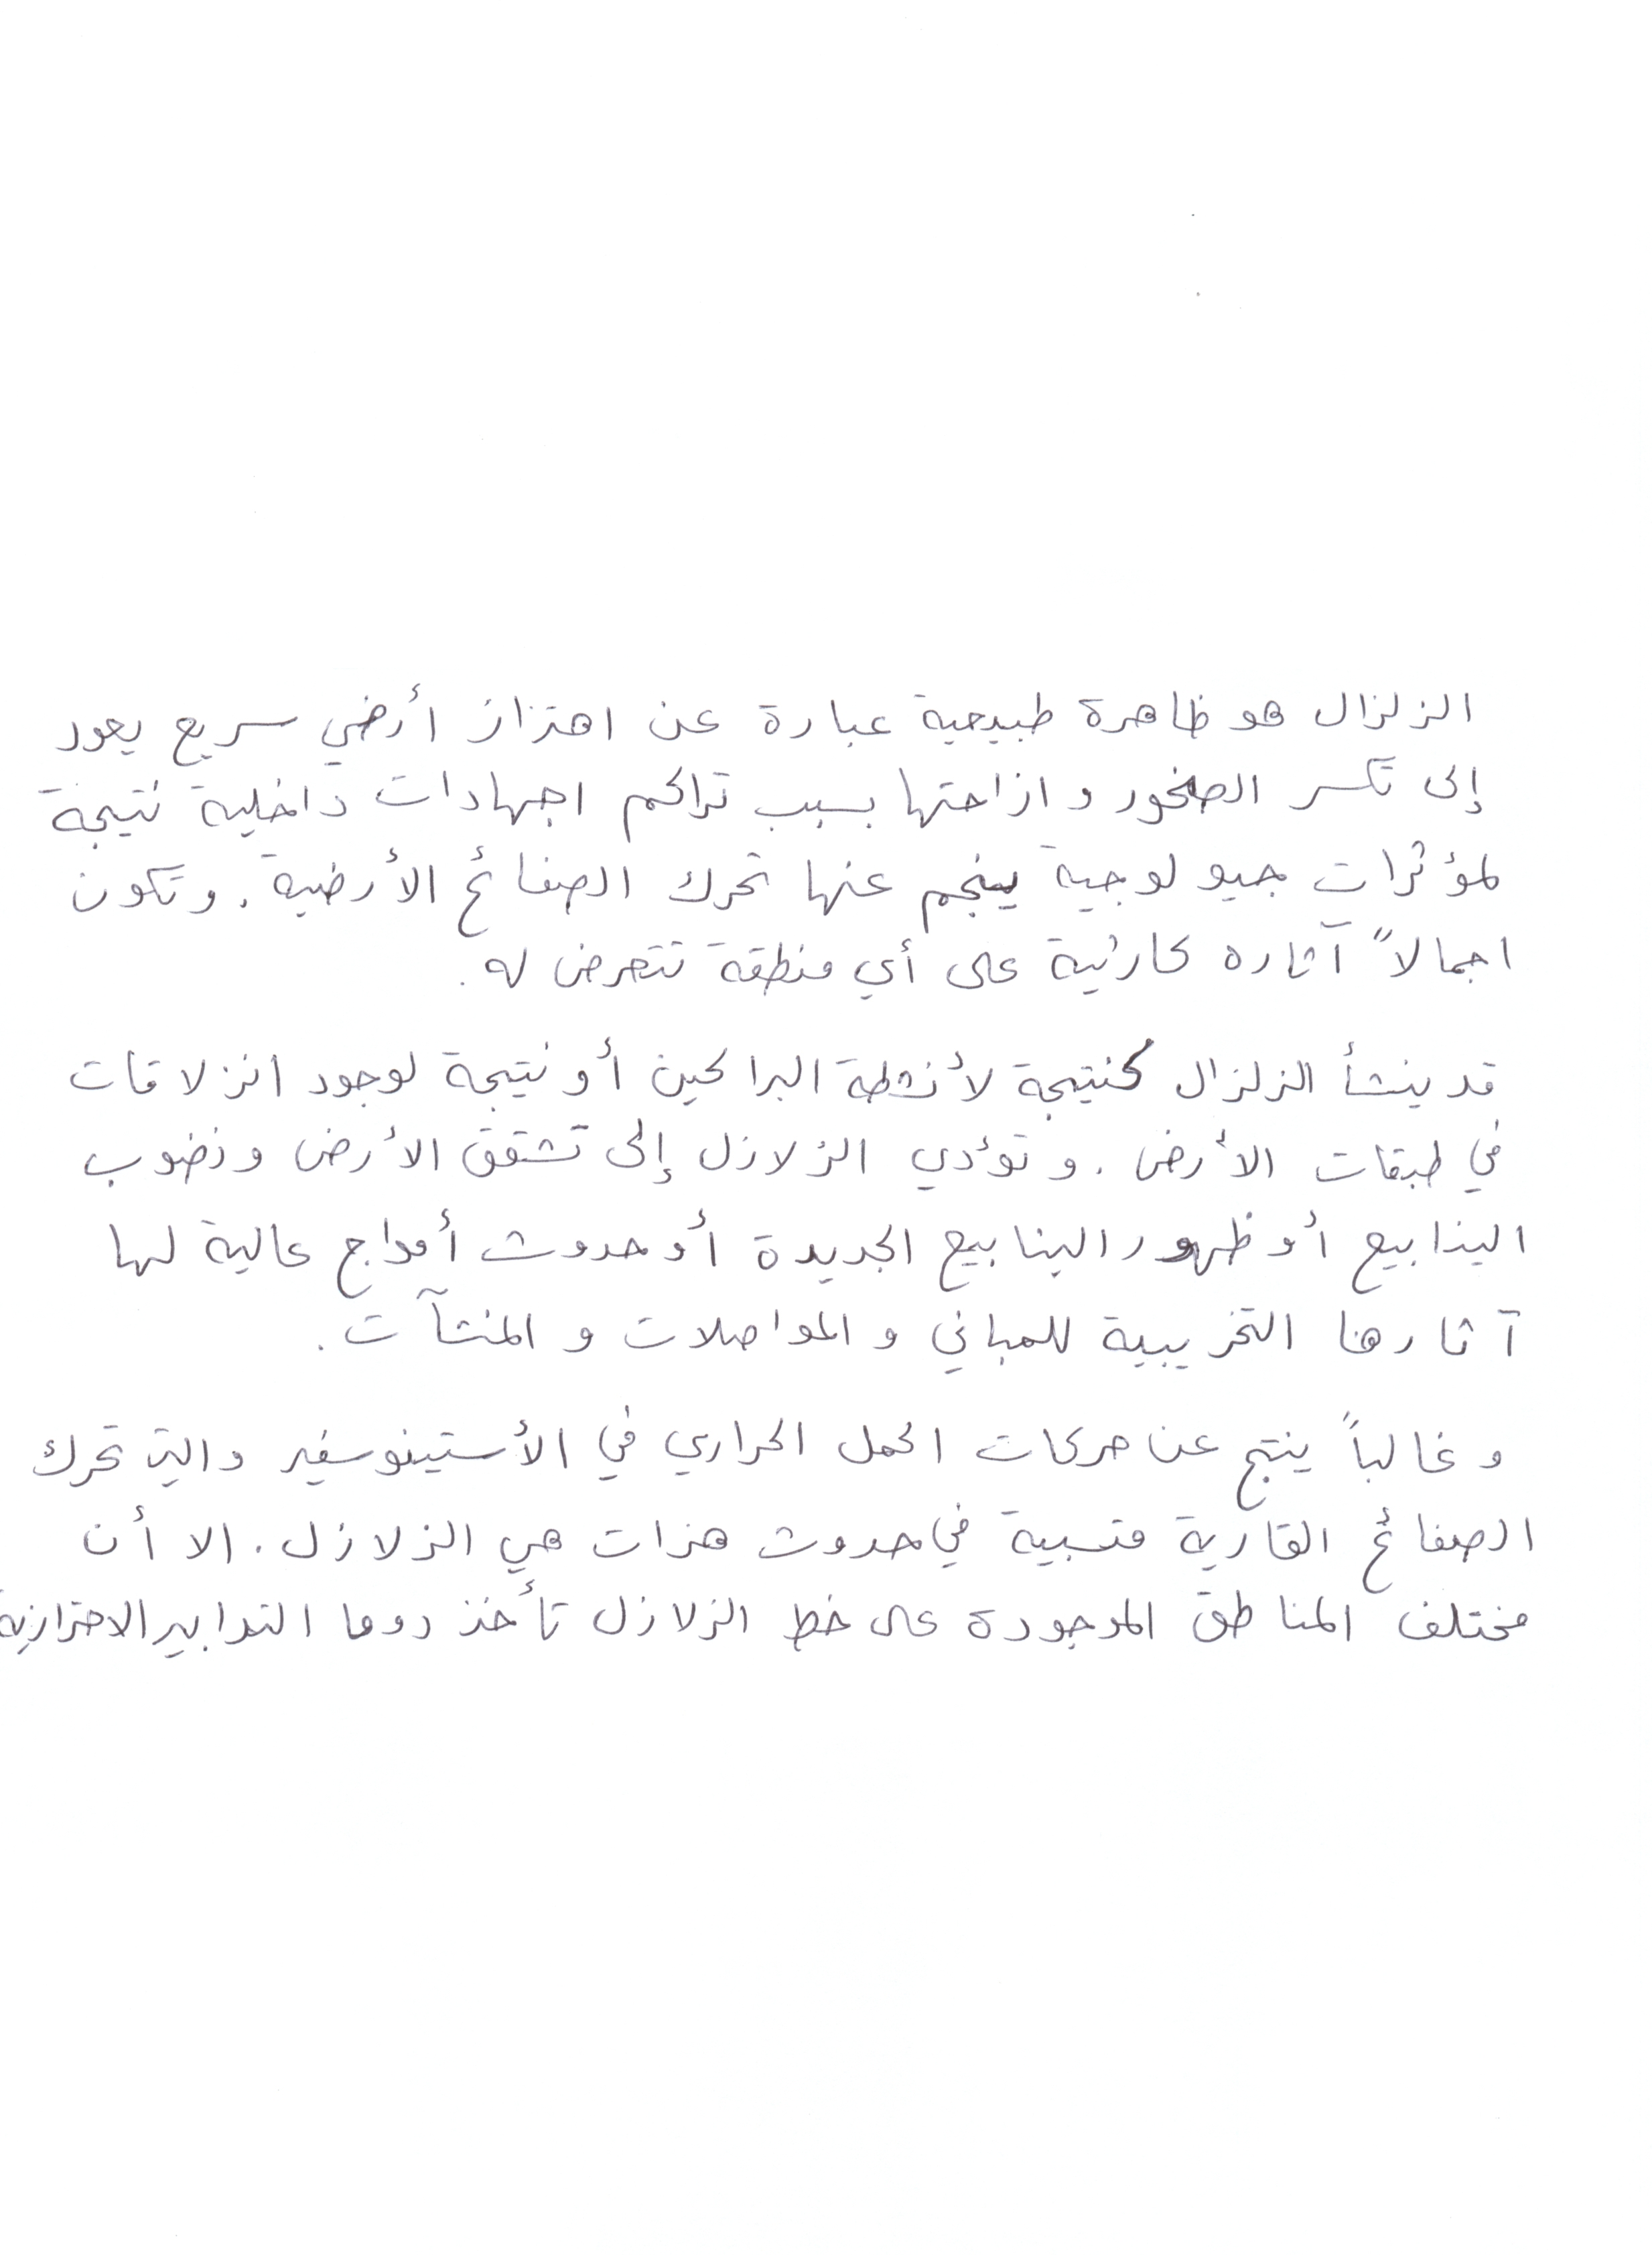 الزلزال هو ظاهرة طبيعية عبارة عن اهتزاز أرضي سريع يعود
إلى تكسر الصخور وازاحتها بسبب تراكم اجهادات داخلية نتيجة
لمؤثرات جيولوجية ينجم عنها تحرك الصفائح الأرضية. وتكون
اجمالاً آثاره كارثية على أي منطقة تتعرض له.
قد ينشأ الزلزال كنتيجة لأنشطة البراكين أو نتيجة لوجود انزلاقات
في طبقات الأرض. وتؤدي الزلازل إلى تشقق الأرض ونضوب
الينابيع أو ظهور الينابيع الجديدة أو حدوث أمواج عالية لها
آثارها التخريبية للمباني والمواصلات والمنشآت.
وغالباً ينتج عن حركات الحمل الحراري في الأستينوسفير والتي تحرك
الصفائح القارية متسببة في حدوث هزات هي الزلازل. الا أن
مختلف المناطق الموجودة على خط الزلازل تأخذ دوما التدابير الاحترازية